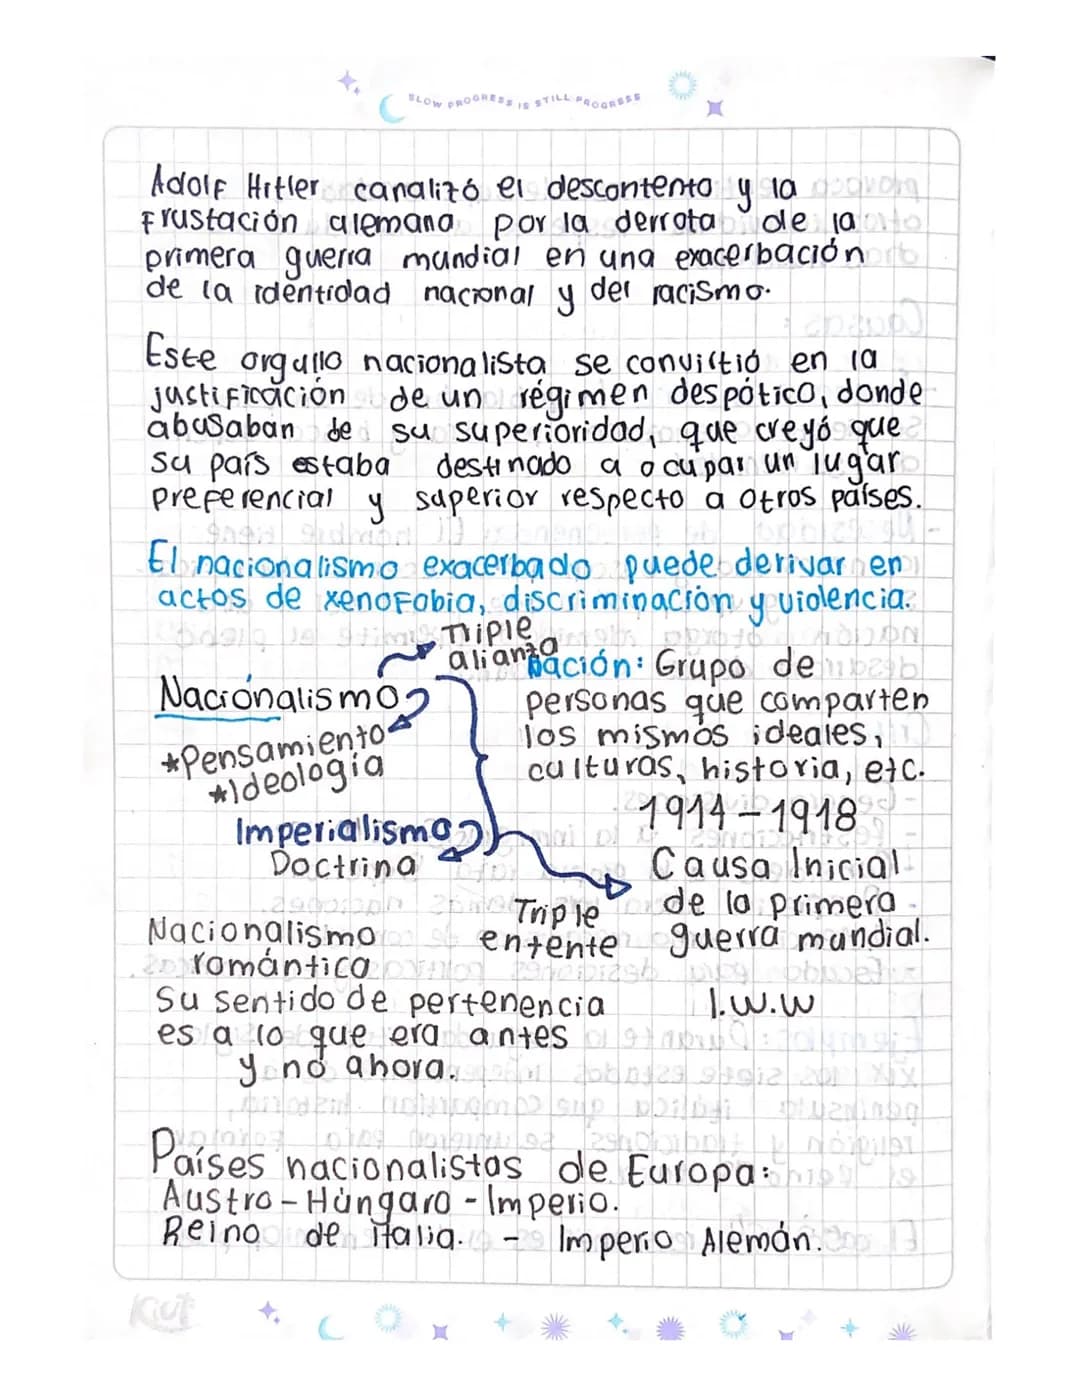 SLOW PROGRESS IS STILL PROGRESS
Adolf Hitler canalizó el descontento y la
Frustación alemana por la derrota de la
primera guerra mundial en una exacerbación
de la identidad nacional y del racismo.
Este orgullo nacionalista se convirtió en la
justificación de un régimen despótico, donde
abusaban de su superioridad, que creyó que
su país estaba destinado a ocupar un lugar
preferencial y superior respecto a otros países.
El nacionalismo exacerbado puede derivar en
actos de xenofobia, discriminación y violencia.
Triple
alianza
Nacionalismo
*Pensamiento
*Ideología
Imperialismo
Doctrina
nación: Grupo de
personas que comparten
los mismos ideales,
culturas, historia, etc.
1914-1918
Causa Inicial
de la primera
guerra mundial.
1.W.W
Triple
entente
Nacionalismo
romántica
Su sentido de pertenencia
es a lo que era antes
y no ahora.
Países nacionalistas de Europa:
Austro-Húngaro-Imperio.
Reino de italia. - Imperio Alemán.
Kiut